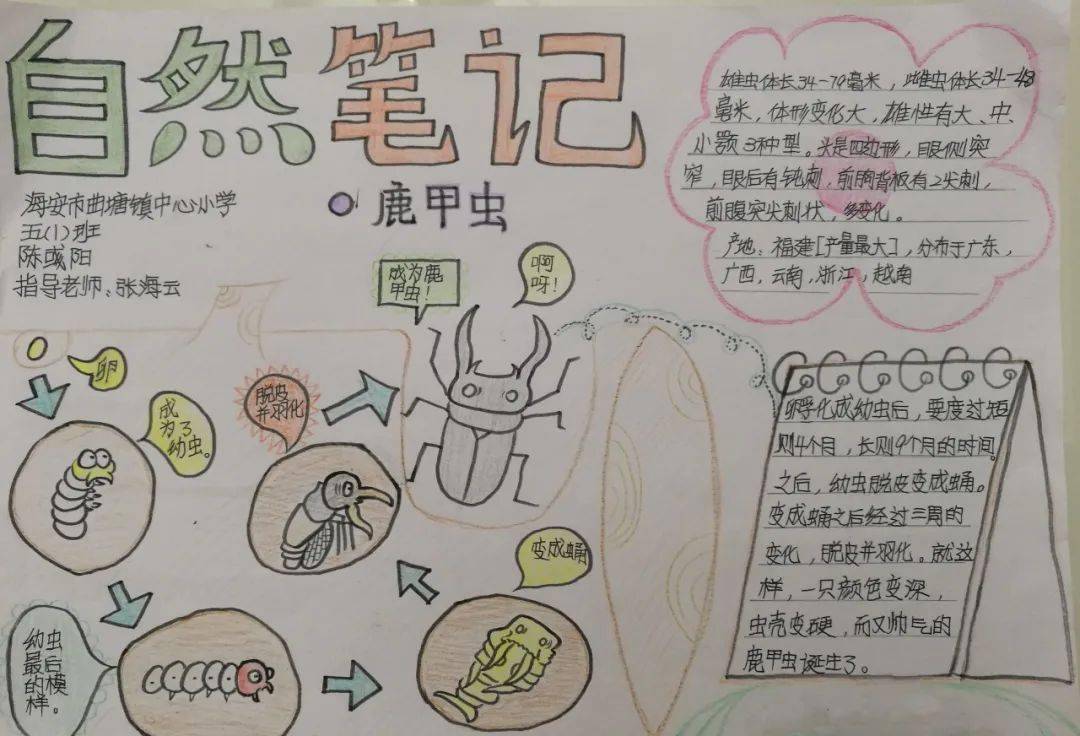 自然笔记
鹿甲虫
海安市曲塘镇中心小学
五(1)班
陈彧阳
指导老师:张海云
雄虫体长34-79毫米，雌虫体长34-48
毫米，体形变化大，雄性有大、中、
小颚3种型。头是四边形，眼侧突
窄，眼后有钝刺，前胸背板有2尖刺，
前腹突尖刺状，多变化。
产地：福建[产量最大]，分布于广东，
广西，云南，浙江，越南
卵
成
为了
幼虫。
幼虫
最后
的模
样。
变成蛹
脱皮
并羽化
成为鹿
甲虫！
啊
呀！
孵化成幼虫后，要度过短
则4个月，长则9个月的时间。
之后，幼虫脱皮变成蛹。
变成蛹之后经过三周的
变化，脱皮并羽化。就这
样，一只颜色变深，
虫壳变硬，而又帅气的
鹿甲虫诞生了。